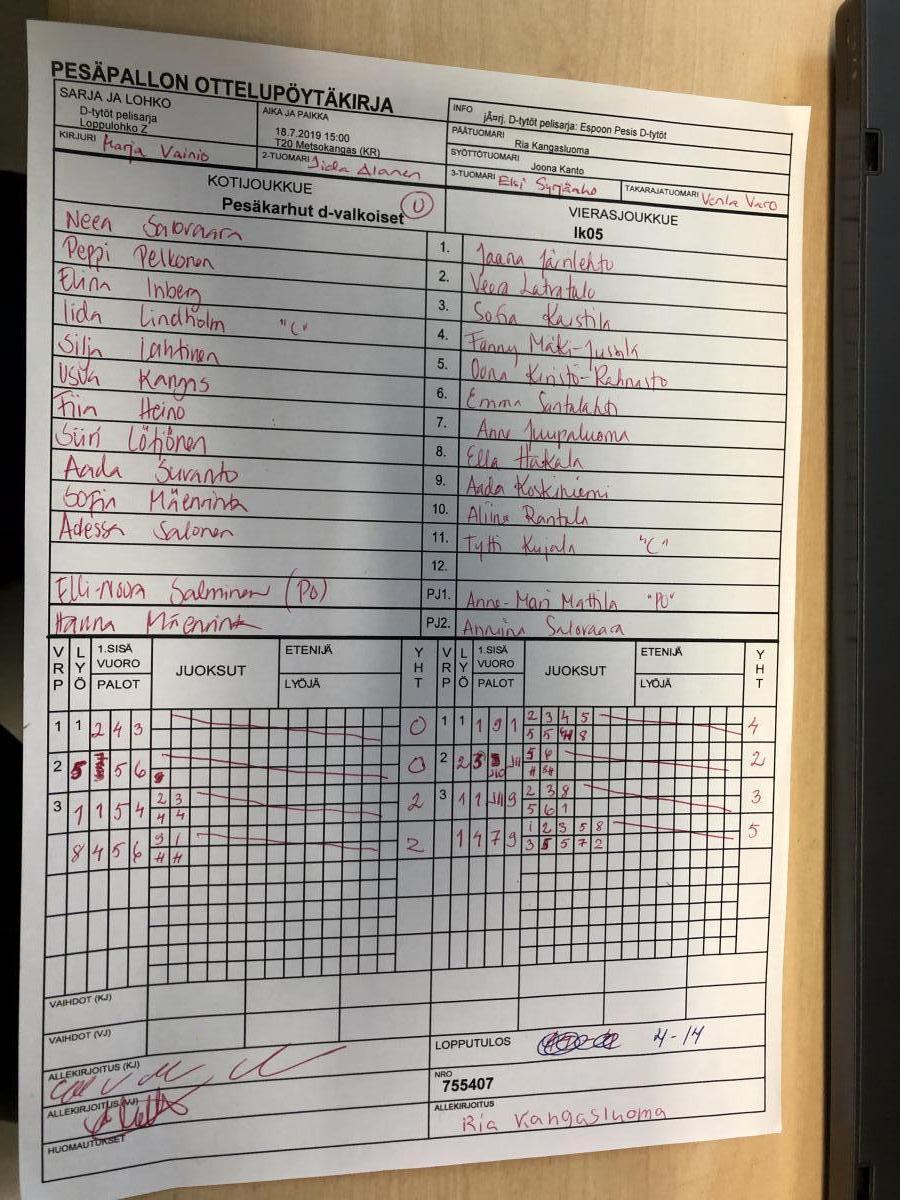 PESÄPALLON OTTELUPÖYTÄKIRJA
SARJA JA LOHKO
D-tytöt pelisarja
Loppulohko Z
AIKA JA PAIKKA
18.7.2019 15:00
T20 Metsokangas (KR)
INFO
jÃ¤rj. D-tytöt pelisarja: Espoon Pesis D-tytöt
PÄÄTUOMARI Ria Kangasluoma
SYÖTTÖTUOMARI Joona Kanto
KIRJURI Marja Vainio
2-TUOMARI Iida Alanen
3-TUOMARI Elsi
TAKARAJATUOMARI Venla Varo
KOTIJOUKKUE
Pesäkarhut d-valkoiset U
VIERASJOUKKUE
Ik05
Neea Salovaara 1. Jaana Järnlehto
Peppi Pelkonen 2. Veera Latvatalo
Elina Inberg 3. Sofia Kaistila
Iida Lindholm "C" 4. Fanny Mäki-Jussila
Silja Lahtinen 5. Oona Kiristö-Rahnasto
Kangas 6. Emma Santalahti
Fiia Heino 7. Anne Juupaluoma
Siiri Lötjönen 8. Ella Hakala
Aada Suvanto 9. Aada Koskiniemi
Sofia Mäenrinta 10. Aliina Rantala
Adessa Salonen 11. Tytti Kujala "C"
12.
Elli-Noora Salminen (PO) PJ1. Anne-Mari Mattila "PO"
Hanna Mäenrinta PJ2. Anniina Salovaara
VRP LYÖ 1.SISÄ VUORO PALOT JUOKSUT ETENIJÄ LYÖJÄ YHT VRP LYÖ 1.SISÄ VUORO PALOT JUOKSUT ETENIJÄ LYÖJÄ YHT
1 1 2 4 3 0 1 1 1 9 1 2 3 4 5 4
5 5 8
2 5 5 6 0 2 2 3 5 6 2
3 1 1 5 4 2 3 2 3 1 1 9 2 3 8 3
4 4 5 6 1
8 4 5 6 9 1 2 1 4 7 9 1 2 3 5 8 5
4 4 3 5 5 7 2
VAIHDOT (KJ)
VAIHDOT (VJ)
LOPPUTULOS 4-14
ALLEKIRJOITUS (KJ)
NRO
755407
ALLEKIRJOITUS (VJ)
ALLEKIRJOITUS
Ria Kangasluoma
HUOMAUTUKSET